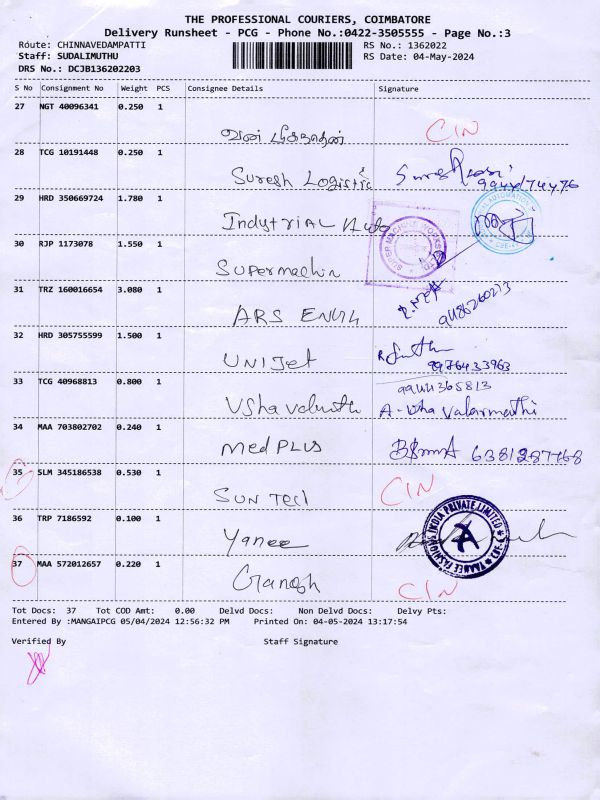 THE PROFESSIONAL COURIERS, COIMBATORE
Delivery Runsheet - PCG - Phone No.:0422-3505555 - Page No.:3
Route: CHINNAVEDAMPATTI RS No.: 1362022
Staff: SUDALIMUTHU RS Date: 04-May-2024
DRS No.: DCJB136202203
S No Consignment No Weight PCS Consignee Details Signature
27 NGT 40096341 0.250 1
CIN
28 TCG 10191448 0.250 1
Suresh Logistic
29 HRD 350669724 1.780 1
Indytrial Auto
30 RJP 1173078 1.550 1
Supermachin
31 TRZ 160016654 3.080 1
ARS ENGG 9486260213
32 HRD 305755599 1.500 1
UNIJet 9976433963
33 TCG 40968813 0.800 1 9944365813
Usha A-Usha Valarmathi
34 MAA 703802702 0.240 1
MedPLUS 6381287768
35 SLM 345186538 0.530 1
SUN Tech CIN
36 TRP 7186592 0.100 1
Yanee
37 MAA 572012657 0.220 1
Ganesh CIN
Tot Docs: 37 Tot COD Amt: 0.00 Delvd Docs: Non Delvd Docs: Delvy Pts:
Entered By :MANGAIPCG 05/04/2024 12:56:32 PM Printed On: 04-05-2024 13:17:54
Verified By Staff Signature